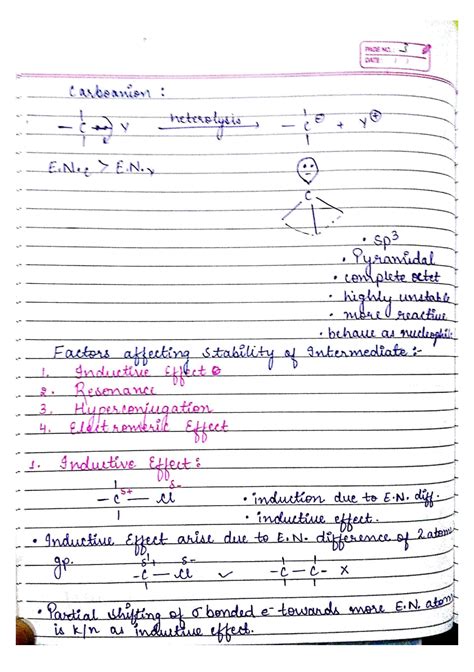 PAGE NO. 3
DATE: / /
Carboanion :
- C - Y heterolysis → - C ⊖ + Y ⊕
E.N.c > E.N.Y
C
• sp3
• Pyramidal
• complete octet
• highly unstable
• more reactive
• behave as nucleophil
Factors affecting stability of Intermediate :-
1. Inductive Effect
2. Resonance
3. Hyperconjugation
4. Electromeric Effect
1. Inductive Effect :
- C δ+ - Cl δ-
• induction due to E.N. diff.
• inductive effect.
• Inductive Effect arise due to E.N. difference of 2 atoms
gp. - C δ+ - Cl δ- ✓ - C - C - x
• Partial shifting of σ bonded e- towards more E.N. atom
is k/n as inductive effect.